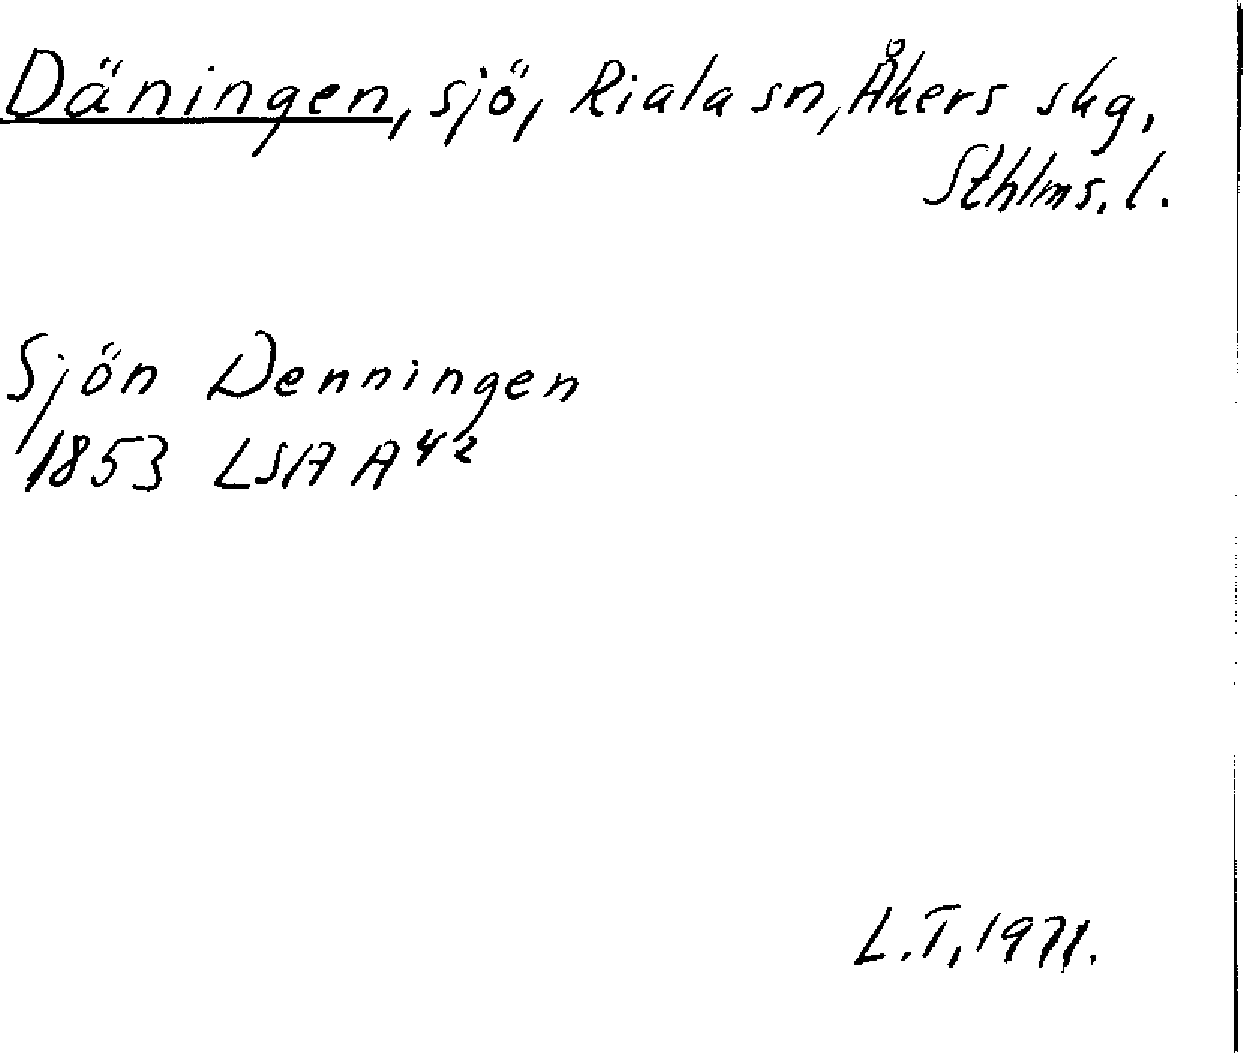 Däningen, sjö, Riala sn, Åkers skg,
Sthlms. l.
Sjön Denningen
1853 LSA A 42
L.T, 1971.